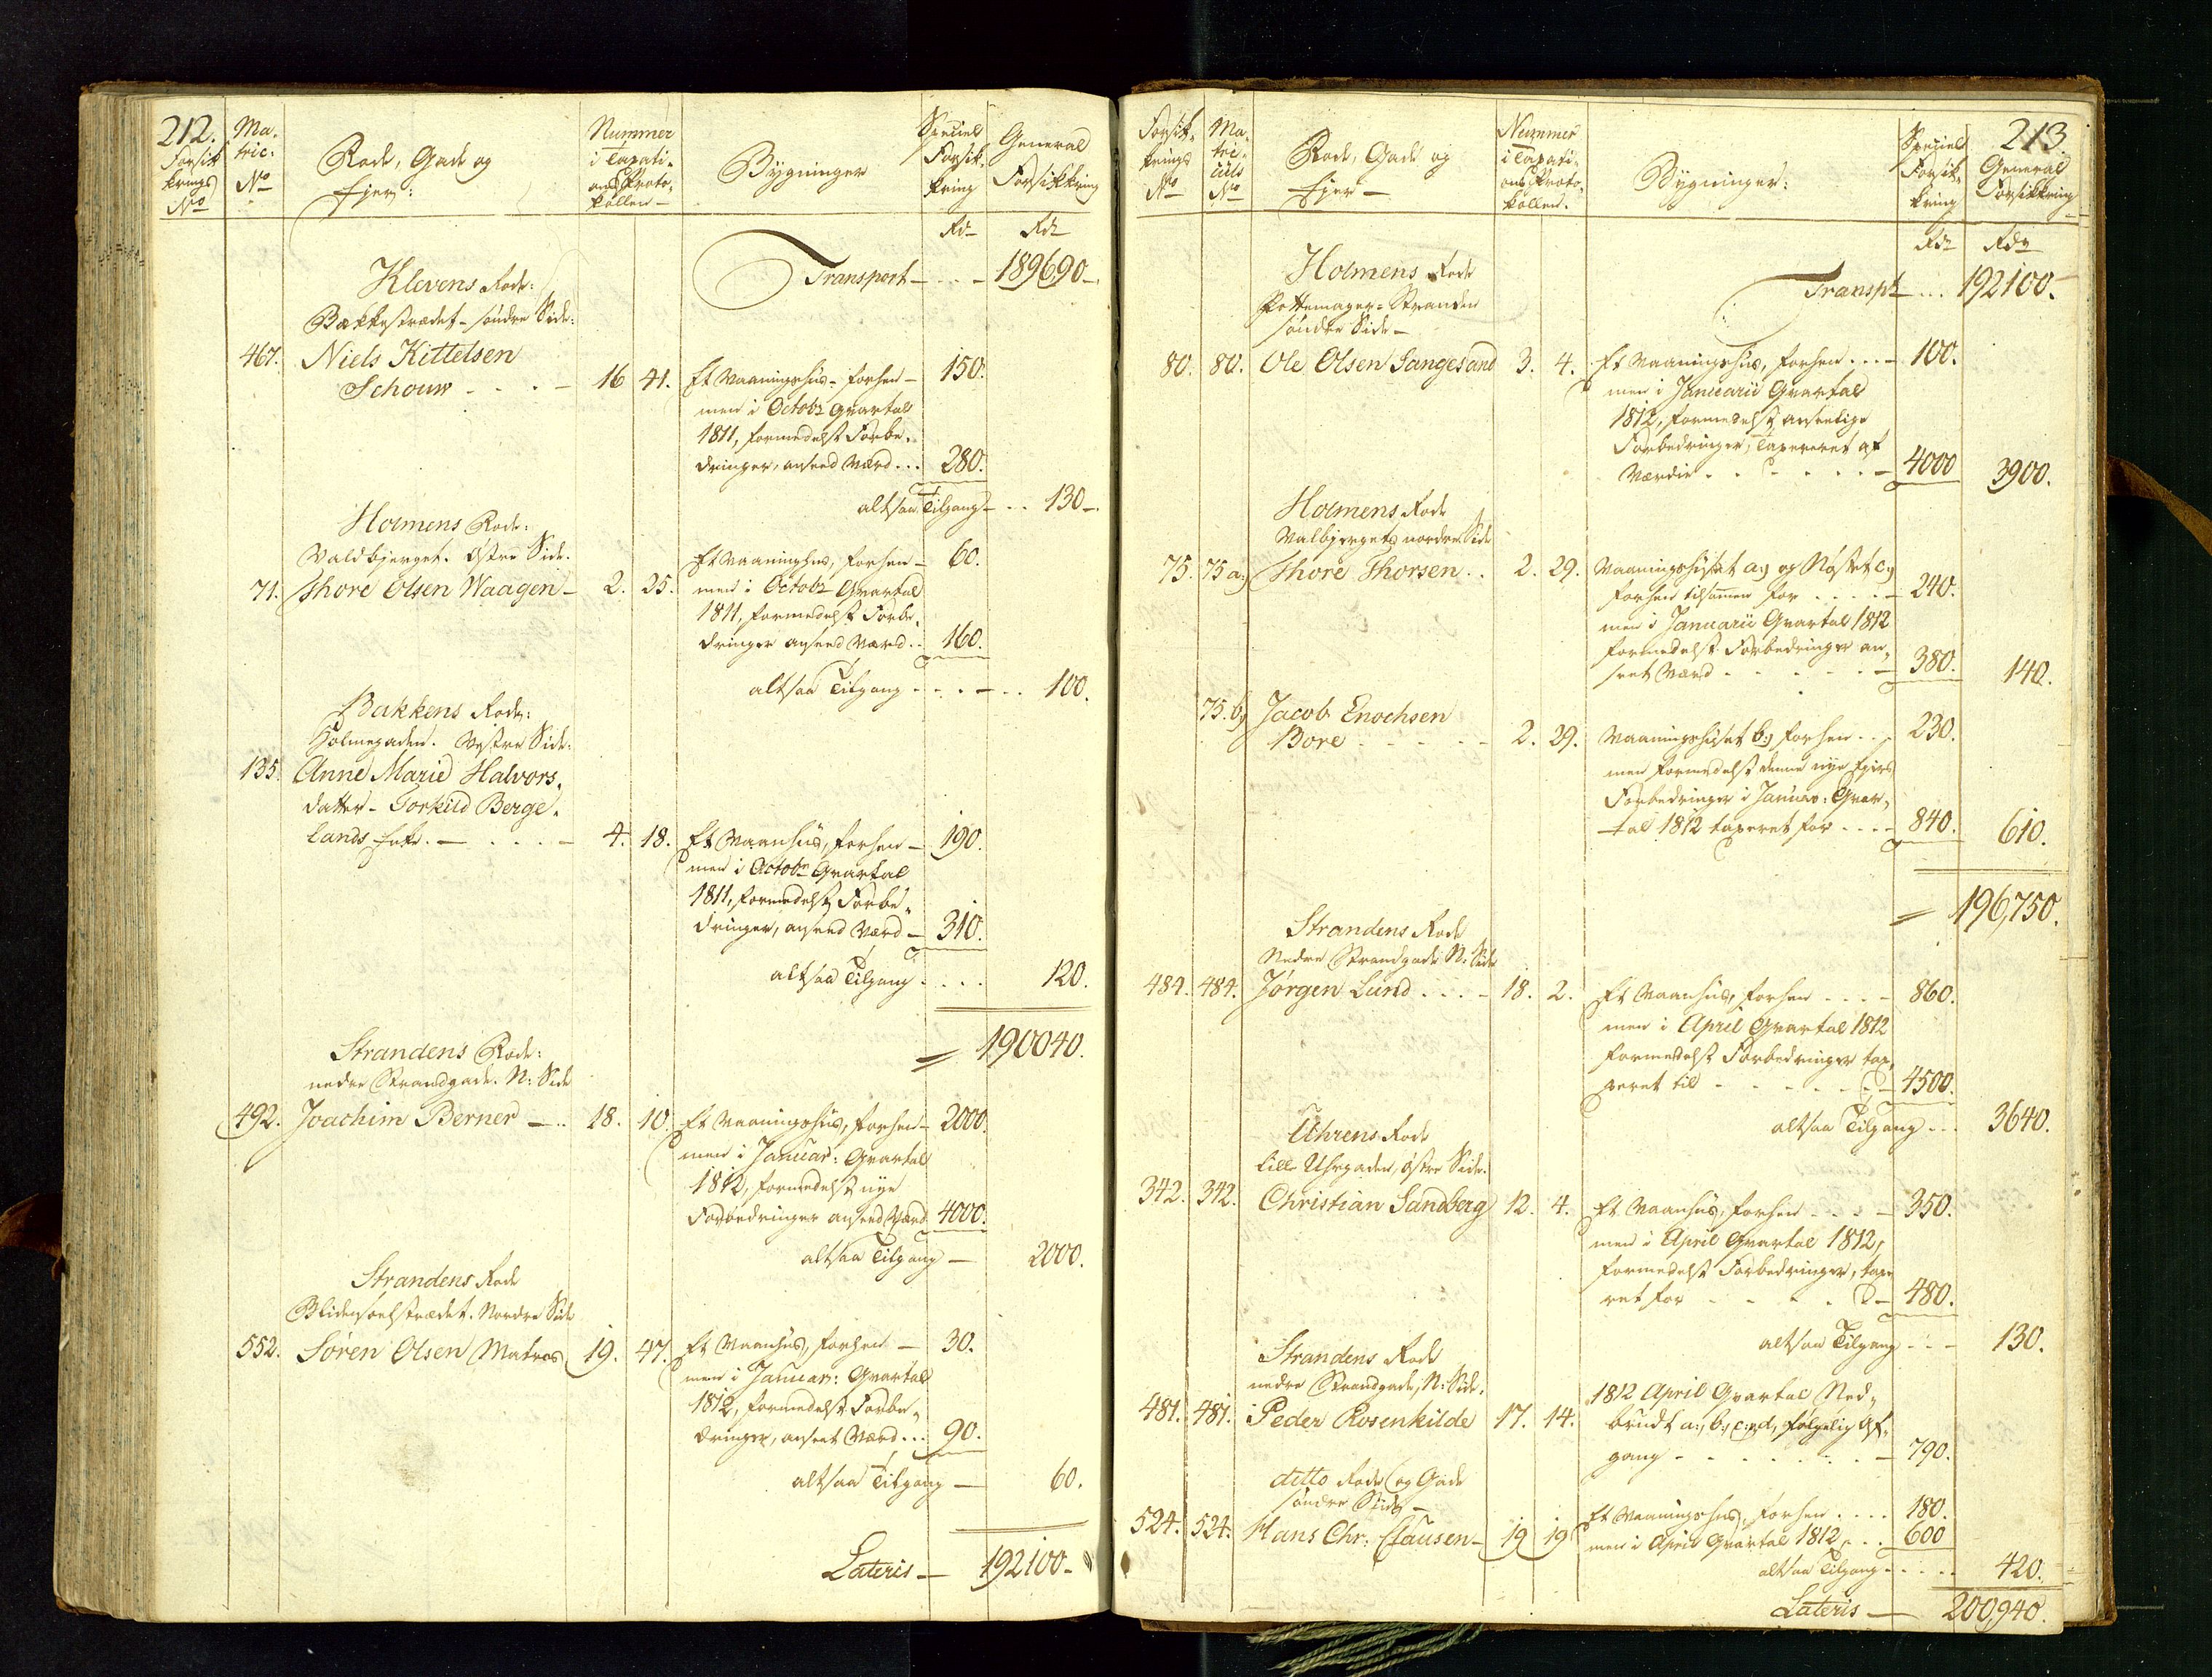 212.
Forsik
krings
No
Ma.
tric:
No
Rode, Gade og
Ejer:
Nummer
i Taxati-
ons Proto-
kollen
Bygninger
Speciel
Forsik-
kring
General
Forsikkring
Rd
Rdr
Transport - 189690.
Klevens Rode:
Bakkestrædet - søndre Side:
467. Niels Kittelsen
Schouw - 16 41. Et Vaaningshus - forhen - 150.
men i Octobr Qvartal
1811, formedelst Forbe-
dringer, anseed værd ... 280.
altsaa Tilgang - .. 130.
Holmens Rode:
Valdbjerget. Østre Side.
71. Thore Olsen Waagen - 2. 25. Et Vaaninghus, forhen - 60.
men i Octobr Qvartal
1811, formedelst Forbe-
dringer anseed værd .. 160.
altsaa Tilgang - 100.
Bakkens Rode:
Holmegaden. Vestre Side.
135. Anne Marie Halvors-
datter - Torkild Berge-
lands Enke. - 4. 18. Et Vaanhus, forhen - 190.
men i Octobr Qvartal
1811, formedelst Forbe-
dringer, anseed værd - 310.
altsaa Tilgang .... 120.
= 190040.
Strandens Rode:
nedre Strandgade. N: Side
492. Joachim Berner - 18. 10. Et Vaaningshus, forhen - 2000.
men i Januar: Qvartal
1812, formedelst nye
Forbedringer anseed værd 4000.
altsaa Tilgang - 2000.
Strandens Rode
Blidensoelstrædet. Nordre Side
552. Søren Olsen Matros 19. 47. Et Vaanhus, forhen - 30.
men i Januar: Qvartal
1812, formedelst Forbe-
dringer, anseet værd ... 90.
altsaa Tilgang - 60.
Lateris - 192100.
213.
Forsik-
krings
No
Ma-
tri-
culs
No
Rode, Gade og
Ejer -
Nummer
i Taxati-
ons Proto-
kollen.
Bygninger:
Speciel
Forsik-
kring
General
Forsikkring
Rdr
Rdr
Transpt ... 192100.
Holmens Rode
Pottemager-Stranden
søndre Side -
80. 80. Ole Olsen Gangesand 3. 4. Et Vaaningshus, forhen ... 100.
men i Januarii Qvartal
1812, formedelst anseelige
Forbedringer, Taxereret af
Værdie - 4000 3900.
Holmens Rode
Valbjergets nordre Side
75. 75 a) Thore Thorsen .. 2. 29. Vaaningshuset a:) og Nøstet c:)
forhen tilsammen for .... 240.
men i Januarii Qvartal 1812
formedelst Forbedringer an-
seet værd - 380. 140.
75. b) Jacob Enochsen
Bore - 2. 29. Vaaningshuset b:) forhen .. 230.
men formedelst denne nye Ejers
Forbedringer i Januar: Qvar-
tal 1812 taxeret for .... 840. 610.
= 196,750.
Strandens Rode
Nedre Strandgade N: Side
484. 484. Jørgen Lund .... 18. 2. Et Vaanhus, forhen .... 860.
men i April Qvartal 1812
formedelst Forbedringer tax-
eeret til - 4500.
altsaa Tilgang ... 3640.
Uhrens Rode
lille Uhrgaden, østre Side.
342. 342. Christian Sandberg 12. 4. Et Vaanhus, forhen .... 350.
men i April Qvartal 1812,
formedelst Forbedringer, taxe
ret for - 480.
altsaa Tilgang ... 130.
Strandens Rode
nedre Strandgade, N: Side.
481. 481. Peder Rosenkilde 17. 14. 1812 April Qvartal Ned-
brudt a:, b:, c: og d, følgelig Af-
gang - 790.
ditto Rode og Gade
søndre Side -
524. 524. Hans Chr: Clausen - 19 19 Et Vaaningshus, forhen .... 180.
men i April Qvartal 1812 ... 600
altsaa Tilgang ..... 420.
Lateris - 200,940.